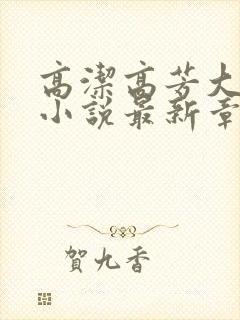 高潔高芳大
小說最新章
賀九香